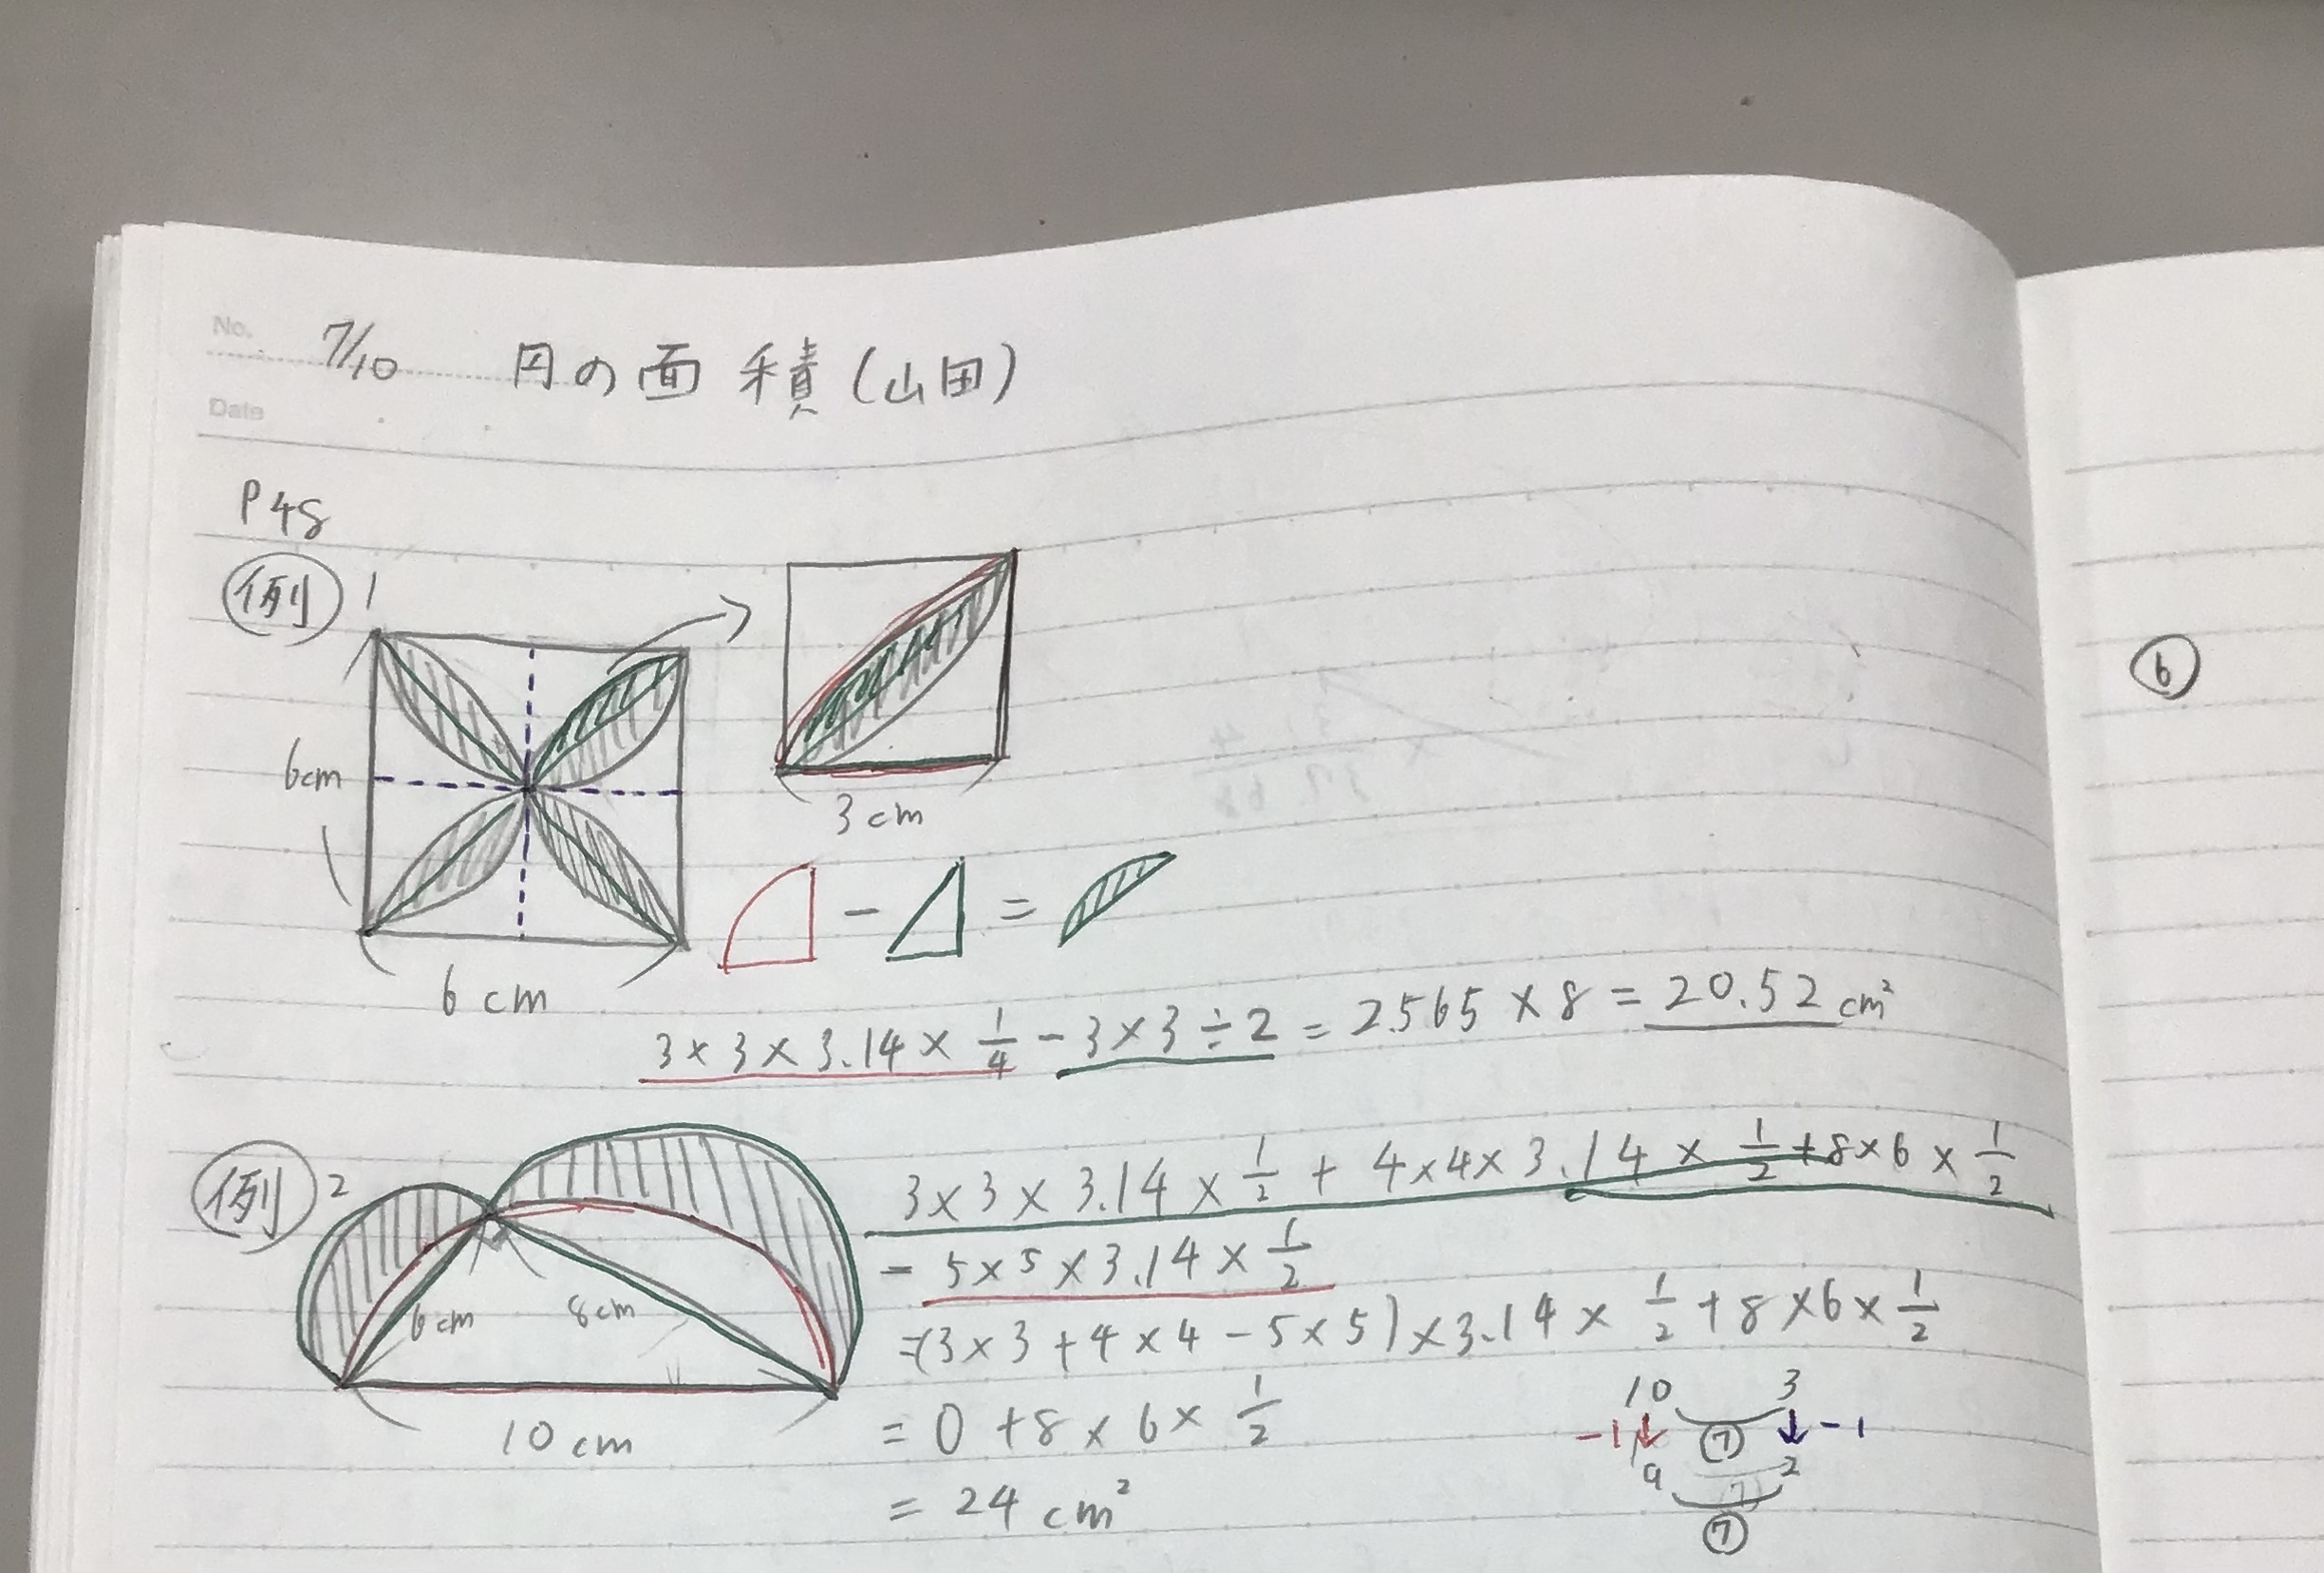 No.
7/10 円の面積(山田)
Date
P48
例 1
6cm
3cm
6cm
- =
3×3×3.14×1/4-3×3÷2=2.565×8=20.52cm²
例 2
6cm
8cm
10cm
3×3×3.14×1/2+4×4×3.14×1/2+8×6×1/2
-5×5×3.14×1/2
=(3×3+4×4-5×5)×3.14×1/2+8×6×1/2
=0+8×6×1/2
=24cm²
10 3
-1 ↓ ⑦ ↓ -1
9 2
⑦
⑥